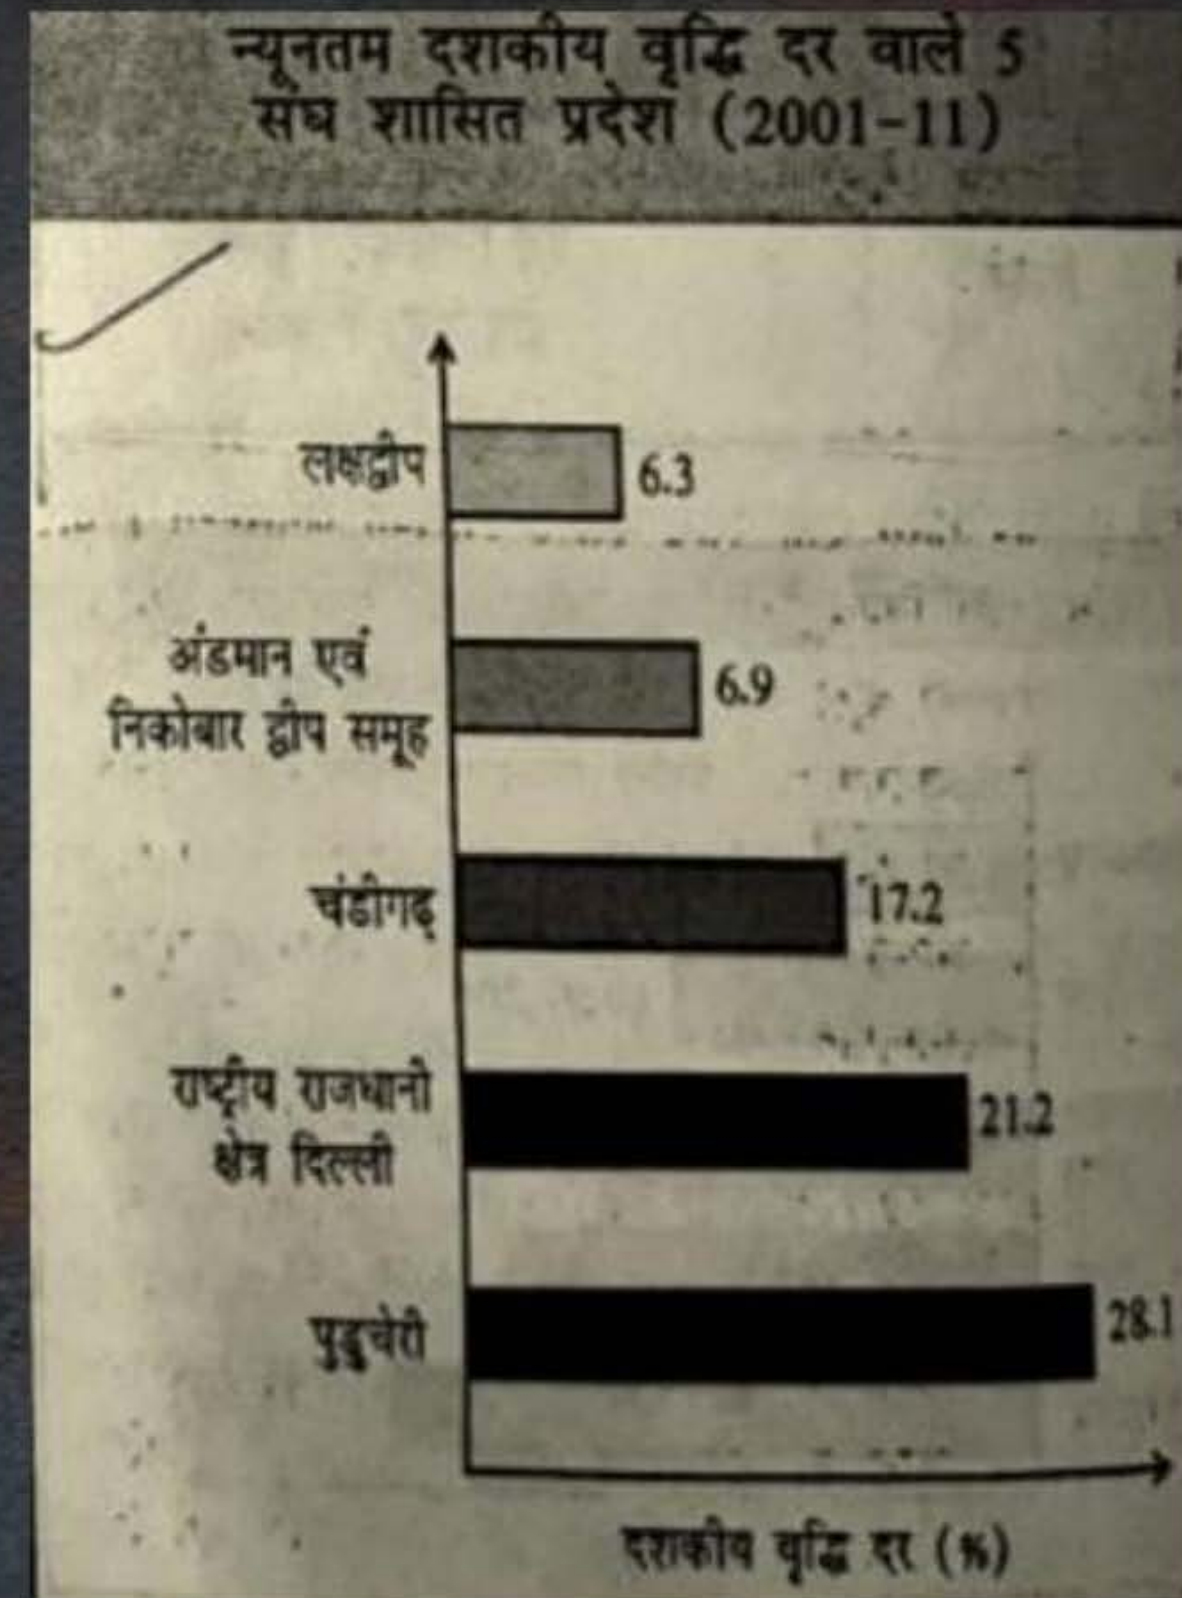 न्यूनतम दशकीय वृद्धि दर वाले 5
संघ शासित प्रदेश (2001-11)
लक्षद्वीप
6.3
अंडमान एवं
निकोबार द्वीप समूह
6.9
चंडीगढ़
17.2
राष्ट्रीय राजधानी
क्षेत्र दिल्ली
21.2
पुडुचेरी
28.1
दशकीय वृद्धि दर (%)